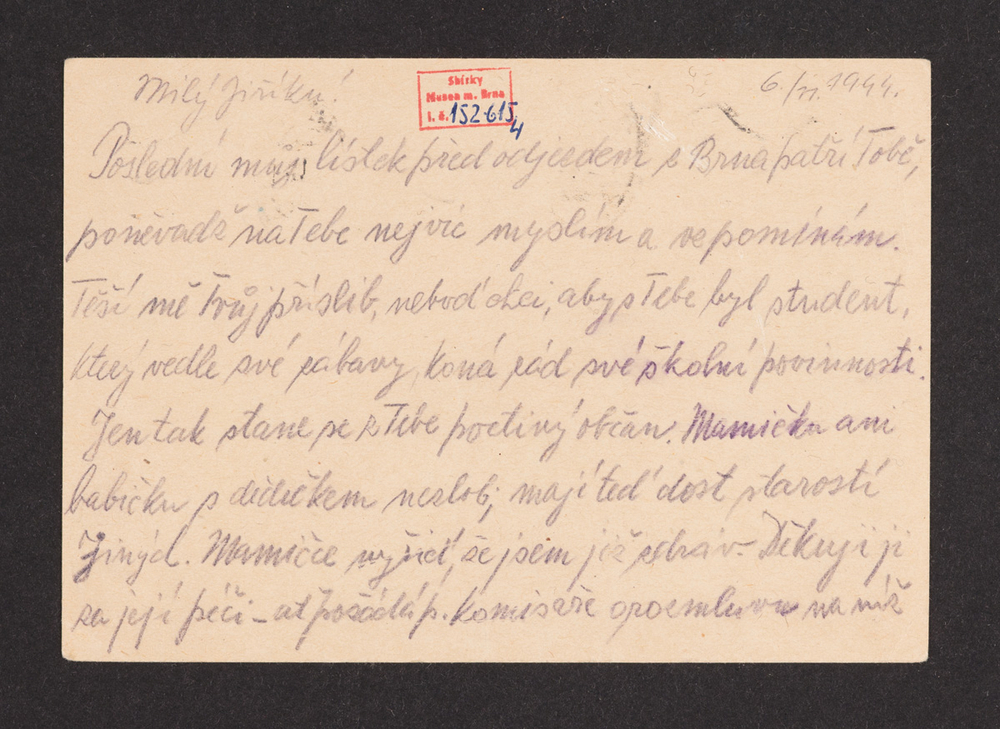 Milý Jiříku!
6./11. 1944.
Sbírky
Musea m. Brna
i. č. 152.615/4
Poslední můj lístek před odjezdem z Brna patří Tobě,
poněvadž na Tebe nejvíc myslím a vzpomínám.
Těší mě Tvůj příslib, neboť chci, aby z Tebe byl student,
který vedle své zábavy, koná rád své školní povinnosti.
Jen tak stane se z Tebe poctivý občan. Mamičku ani
babičku s dědečkem nezlob, mají teď dost starostí
jiných. Mamičce vyřiď, že jsem již zdráv – Děkuji jí
za její péči – ať požádá p. komisaře o rozmluvu na níž